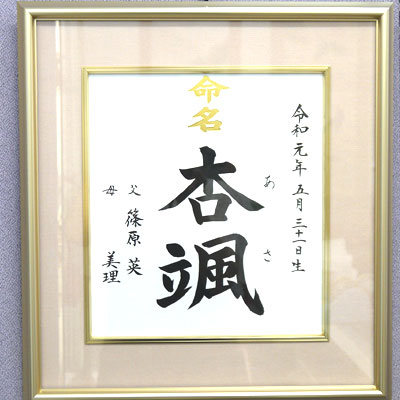 命名
令和元年五月三十一日生
あさ
杏颯
父 篠原 英
母 美理